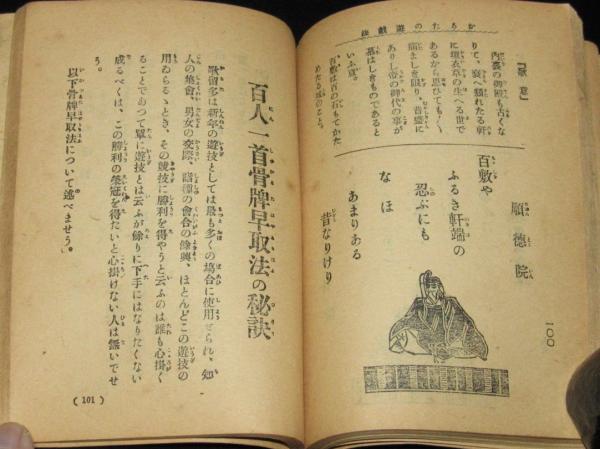 かるたの遊戯法
『歌意』
内裏の御殿も古くな
りて、衰へ頽れたる軒
に瓌衣草の生へる世で
あるから思ひても〳〵
尽ましき限り、昔盛に
ありし帝の御代の事が
慕はしきものであると
いふ意。
百敷は百の石もてかた
めたる城のこと。
順徳院
百敷や
ふるき軒端の
忍ぶにも
なほ
あまりある
昔なりけり
一〇〇
百人一首骨牌早取法の秘訣
歌留多は新年の遊技としては最も多くの場合に使用せられ、知
人の集會、男女の交際、諸種の會合の餘興、ほとんどこの遊技の
用ゐらるゝとき、その競技に勝利を得やうと云ふのは誰も心掛く
ることであつて單に遊技とは云ふが餘りに下手にはなりたくない
成るべくは、この勝利の榮冠を得たいと心掛けない人は無いでせ
う。
以下骨牌早取法について述べませう。
(101)